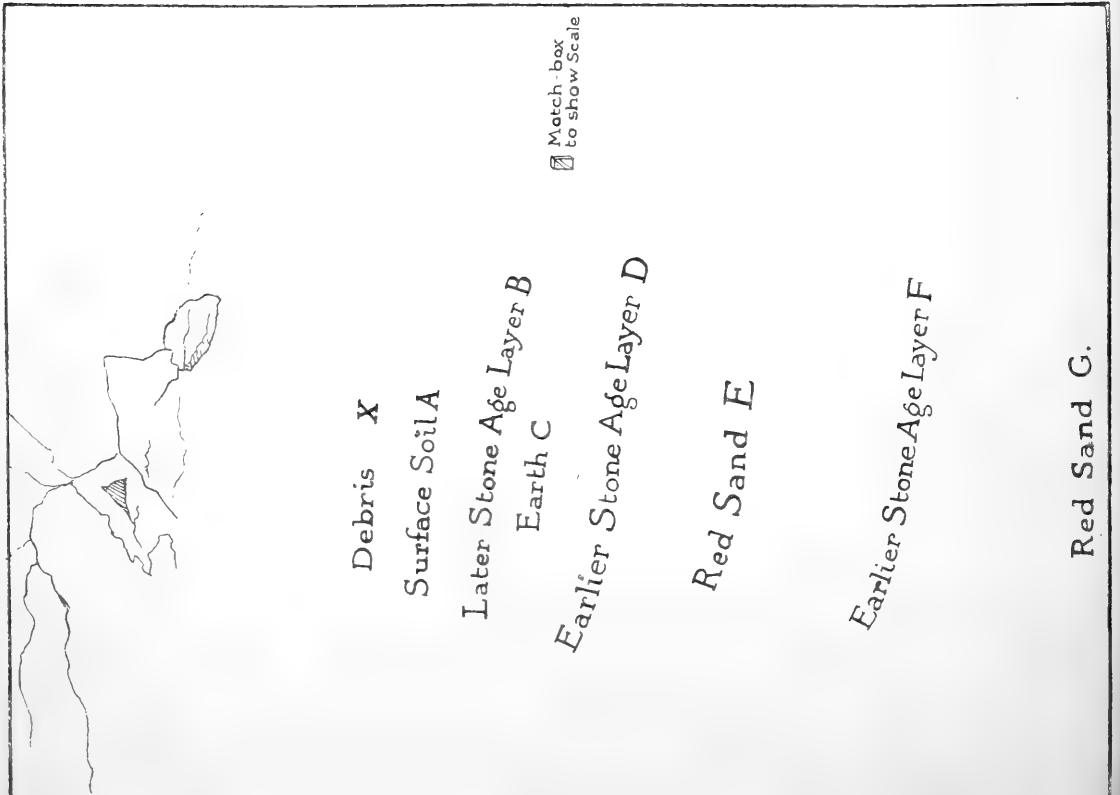 Debris X
Surface Soil A
Later Stone Age Layer B
Earth C
Earlier Stone Age Layer D
Red Sand E
Earlier Stone Age Layer F
Red Sand G.
Match-box
to show Scale